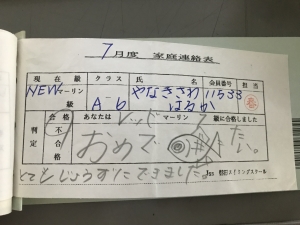 7月度 家庭連絡表
現在級 クラス 氏名 会員番号 担当
NEWマーリン級 A6 やなぎさわ はるか 11533
判定 合格 不合格 あなたは レッドマーリン 級に合格しました
おめで たい。
とてもじょうずにできましたよ
スイミングスクール